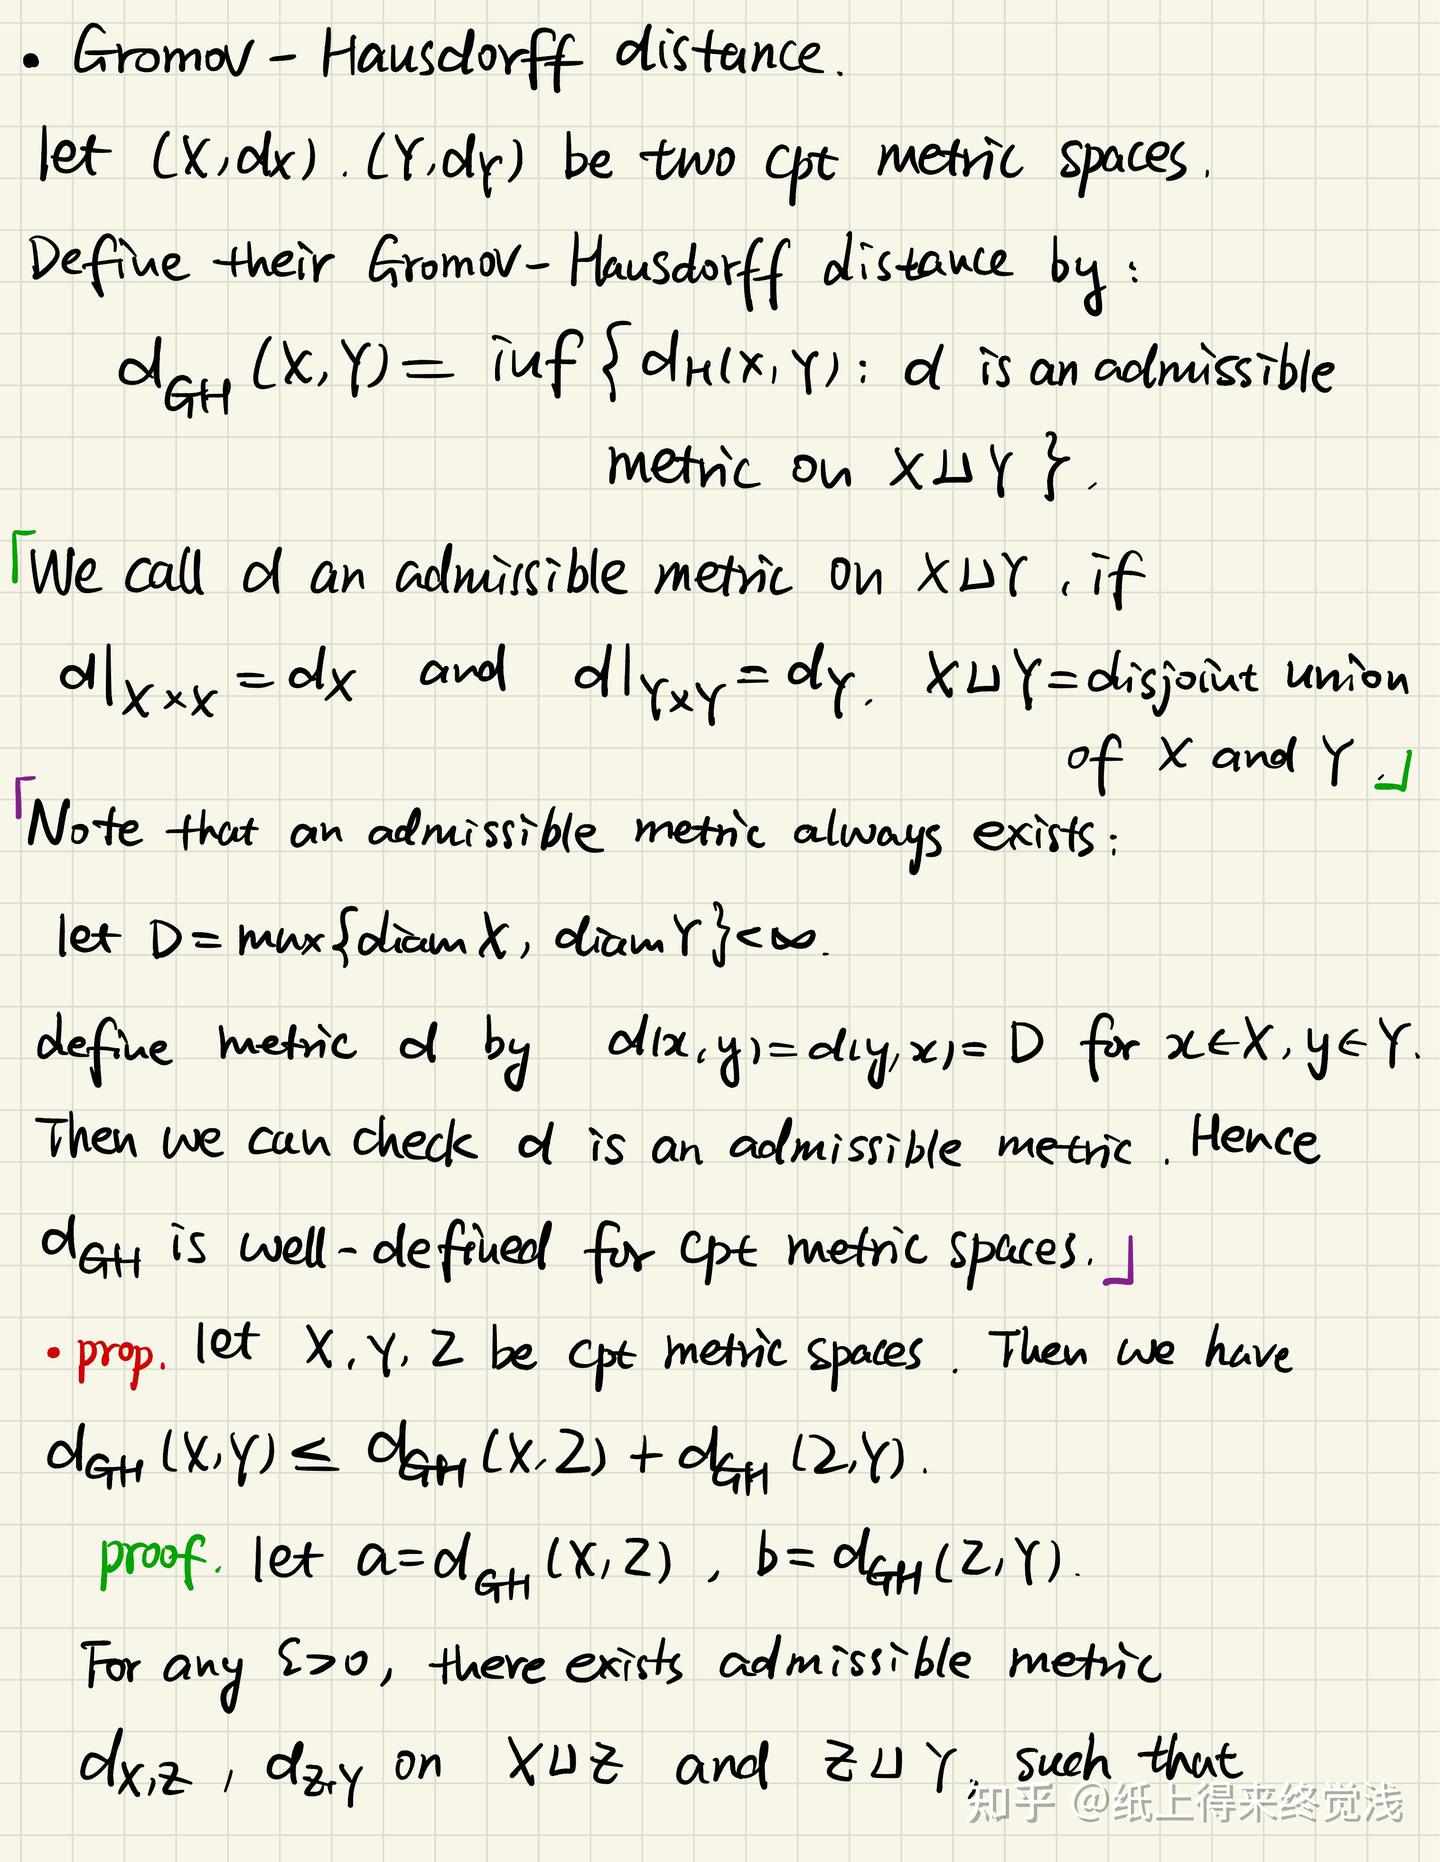 • Gromov - Hausdorff distance.
let (X, dx). (Y, dY) be two cpt metric spaces.
Define their Gromov - Hausdorff distance by :
d_GH (X, Y) = inf { dH(X, Y) : d is an admissible
metric on X⊔Y }.
「We call d an admissible metric on X⊔Y , if
d|X×X = dX and d|Y×Y = dY. X⊔Y = disjoint union
of X and Y.」
「Note that an admissible metric always exists :
let D = max{diam X, diam Y} < ∞.
define metric d by d(x, y) = d(y, x) = D for x∈X, y∈Y.
Then we can check d is an admissible metric. Hence
d_GH is well-defined for cpt metric spaces.」
• prop. let X, Y, Z be cpt metric spaces. Then we have
d_GH (X, Y) ≤ d_GH (X, Z) + d_GH (Z, Y).
proof. let a = d_GH (X, Z) , b = d_GH (Z, Y).
For any ε>0, there exists admissible metric
dX,Z , dZ,Y on X⊔Z and Z⊔Y, such that
知乎 @纸上得来终觉浅